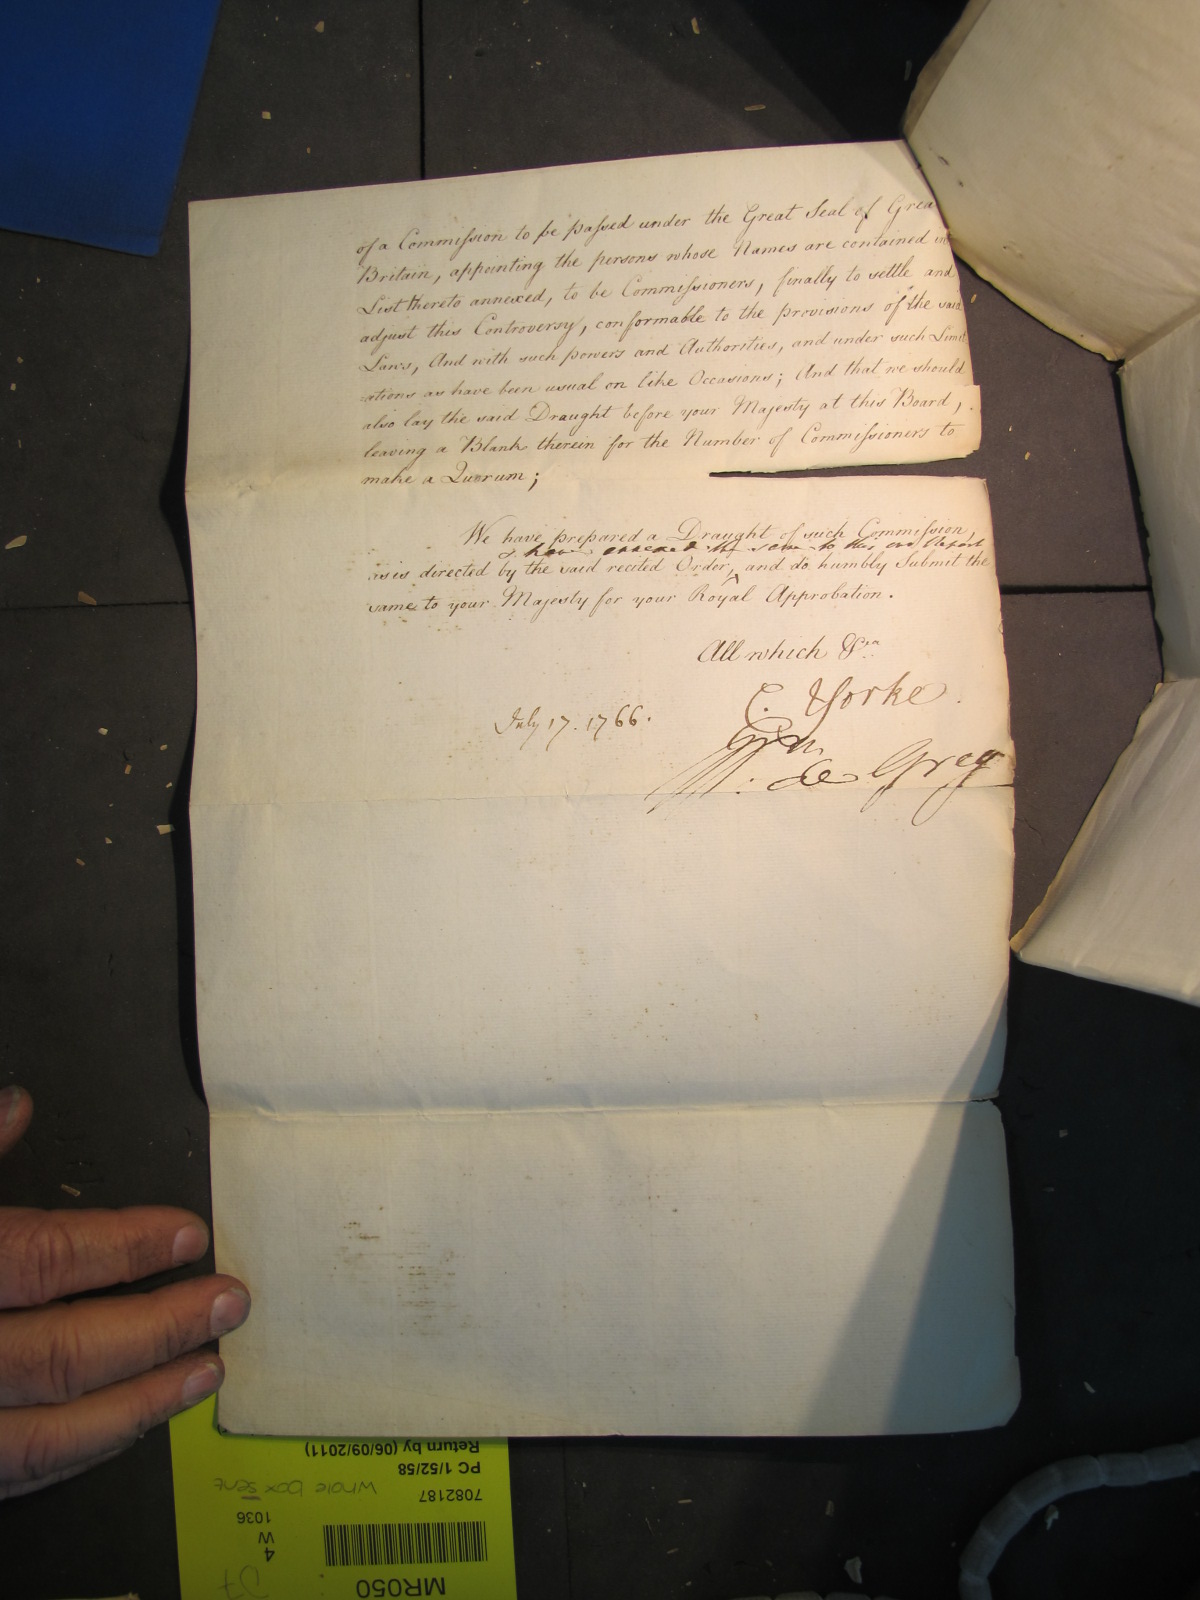 of a Commission to be passed under the Great Seal of Grea
Britain, appointing the persons whose Names are contained in
List thereto annexed, to be Commissioners, finally to settle and
adjust this Controversy, conformable to the provisions of the said
Laws, And with such powers and Authorities, and under such Limit
=ations as have been usual on like Occasions; And that we should
also lay the said Draught before your Majesty at this Board,
leaving a Blank therein for the Number of Commissioners to
make a Quorum;
We have prepared a Draught of such Commission,
& have annexed the same to this our Report
as is directed by the said recited Order, and do humbly Submit the
same to your Majesty for your Royal Approbation.
All which &ca
C. Yorke.
July 17. 1766.
W: de Grey
Return by (06/09/2011)
PC 1/52/58
7082187
whole box sent
1036
W
4
MR050